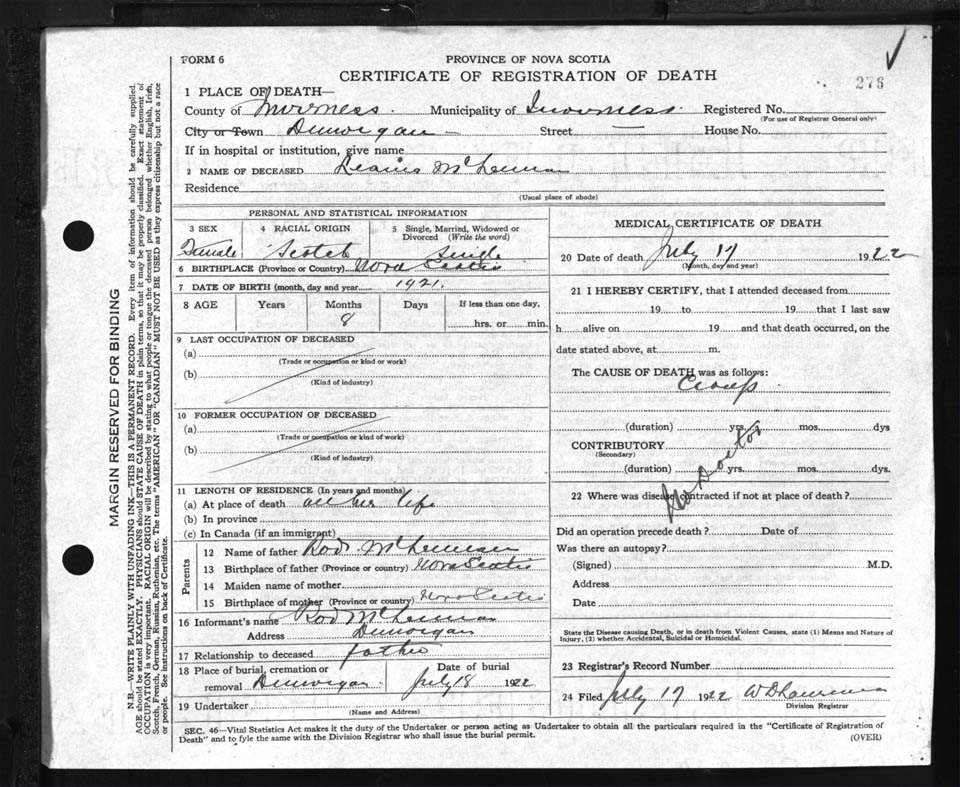 FORM 6
PROVINCE OF NOVA SCOTIA
CERTIFICATE OF REGISTRATION OF DEATH
276
1 PLACE OF DEATH—
County of Inverness. Municipality of Inverness. Registered No.
(For use of Registrar General only)
City or Town Dunvegan — Street — House No.
If in hospital or institution, give name
2 NAME OF DECEASED McLennan
Residence
(Usual place of abode)
PERSONAL AND STATISTICAL INFORMATION
3 SEX 4 RACIAL ORIGIN 5 Single, Married, Widowed or Divorced (Write the word)
Female Scotch Single
6 BIRTHPLACE (Province or Country) Nova Scotia
7 DATE OF BIRTH (month, day and year) 1921.
8 AGE Years Months Days If less than one day,
8 hrs. or min.
9 LAST OCCUPATION OF DECEASED
(a)
(Trade or occupation or kind of work)
(b)
(Kind of industry)
10 FORMER OCCUPATION OF DECEASED
(a)
(Trade or occupation or kind of work)
(b)
(Kind of industry)
11 LENGTH OF RESIDENCE (In years and months)
(a) At place of death all her life
(b) In province
(c) In Canada (if an immigrant)
Parents
12 Name of father Rod. McLennan
13 Birthplace of father (Province or country) Nova Scotia
14 Maiden name of mother
15 Birthplace of mother (Province or country) Nova Scotia
16 Informant's name Rod McLennan
Address Dunvegan
17 Relationship to deceased father
18 Place of burial, cremation or removal Dunvegan. Date of burial July 18 1922
19 Undertaker
(Name and Address)
MEDICAL CERTIFICATE OF DEATH
20 Date of death July 17 1922
(Month, day and year)
21 I HEREBY CERTIFY, that I attended deceased from
19 to 19 that I last saw
h alive on 19 and that death occurred, on the
date stated above, at m.
The CAUSE OF DEATH was as follows:
Croup
(duration) yrs. mos. dys
CONTRIBUTORY
(Secondary)
(duration) yrs. mos. dys.
No Doctor
22 Where was disease contracted if not at place of death?
Did an operation precede death? Date of
Was there an autopsy?
(Signed) M.D.
Address
Date
State the Disease causing Death, or in death from Violent Causes, state (1) Means and Nature of
Injury, (2) whether Accidental, Suicidal or Homicidal.
23 Registrar's Record Number
24 Filed July 17 1922 W D Lawrence
Division Registrar
SEC. 46—Vital Statistics Act makes it the duty of the Undertaker or person acting as Undertaker to obtain all the particulars required in the "Certificate of Registration of
Death" and to fyle the same with the Division Registrar who shall issue the burial permit.
(OVER)
MARGIN RESERVED FOR BINDING
N.B.—WRITE PLAINLY WITH UNFADING INK—THIS IS A PERMANENT RECORD. Every item of information should be carefully supplied.
AGE should be stated EXACTLY. PHYSICIANS should STATE CAUSE OF DEATH in plain terms, so that it may be properly classified. Exact statement of
OCCUPATION is very important. RACIAL ORIGIN will be described by stating to what people or tongue the deceased person belonged whether English, Irish,
Scotch, French, German, Russian, Ruthenian, etc. The terms "AMERICAN" OR "CANADIAN" MUST NOT BE USED as they express citizenship but not a race
or people. See instructions on back of Certificate.